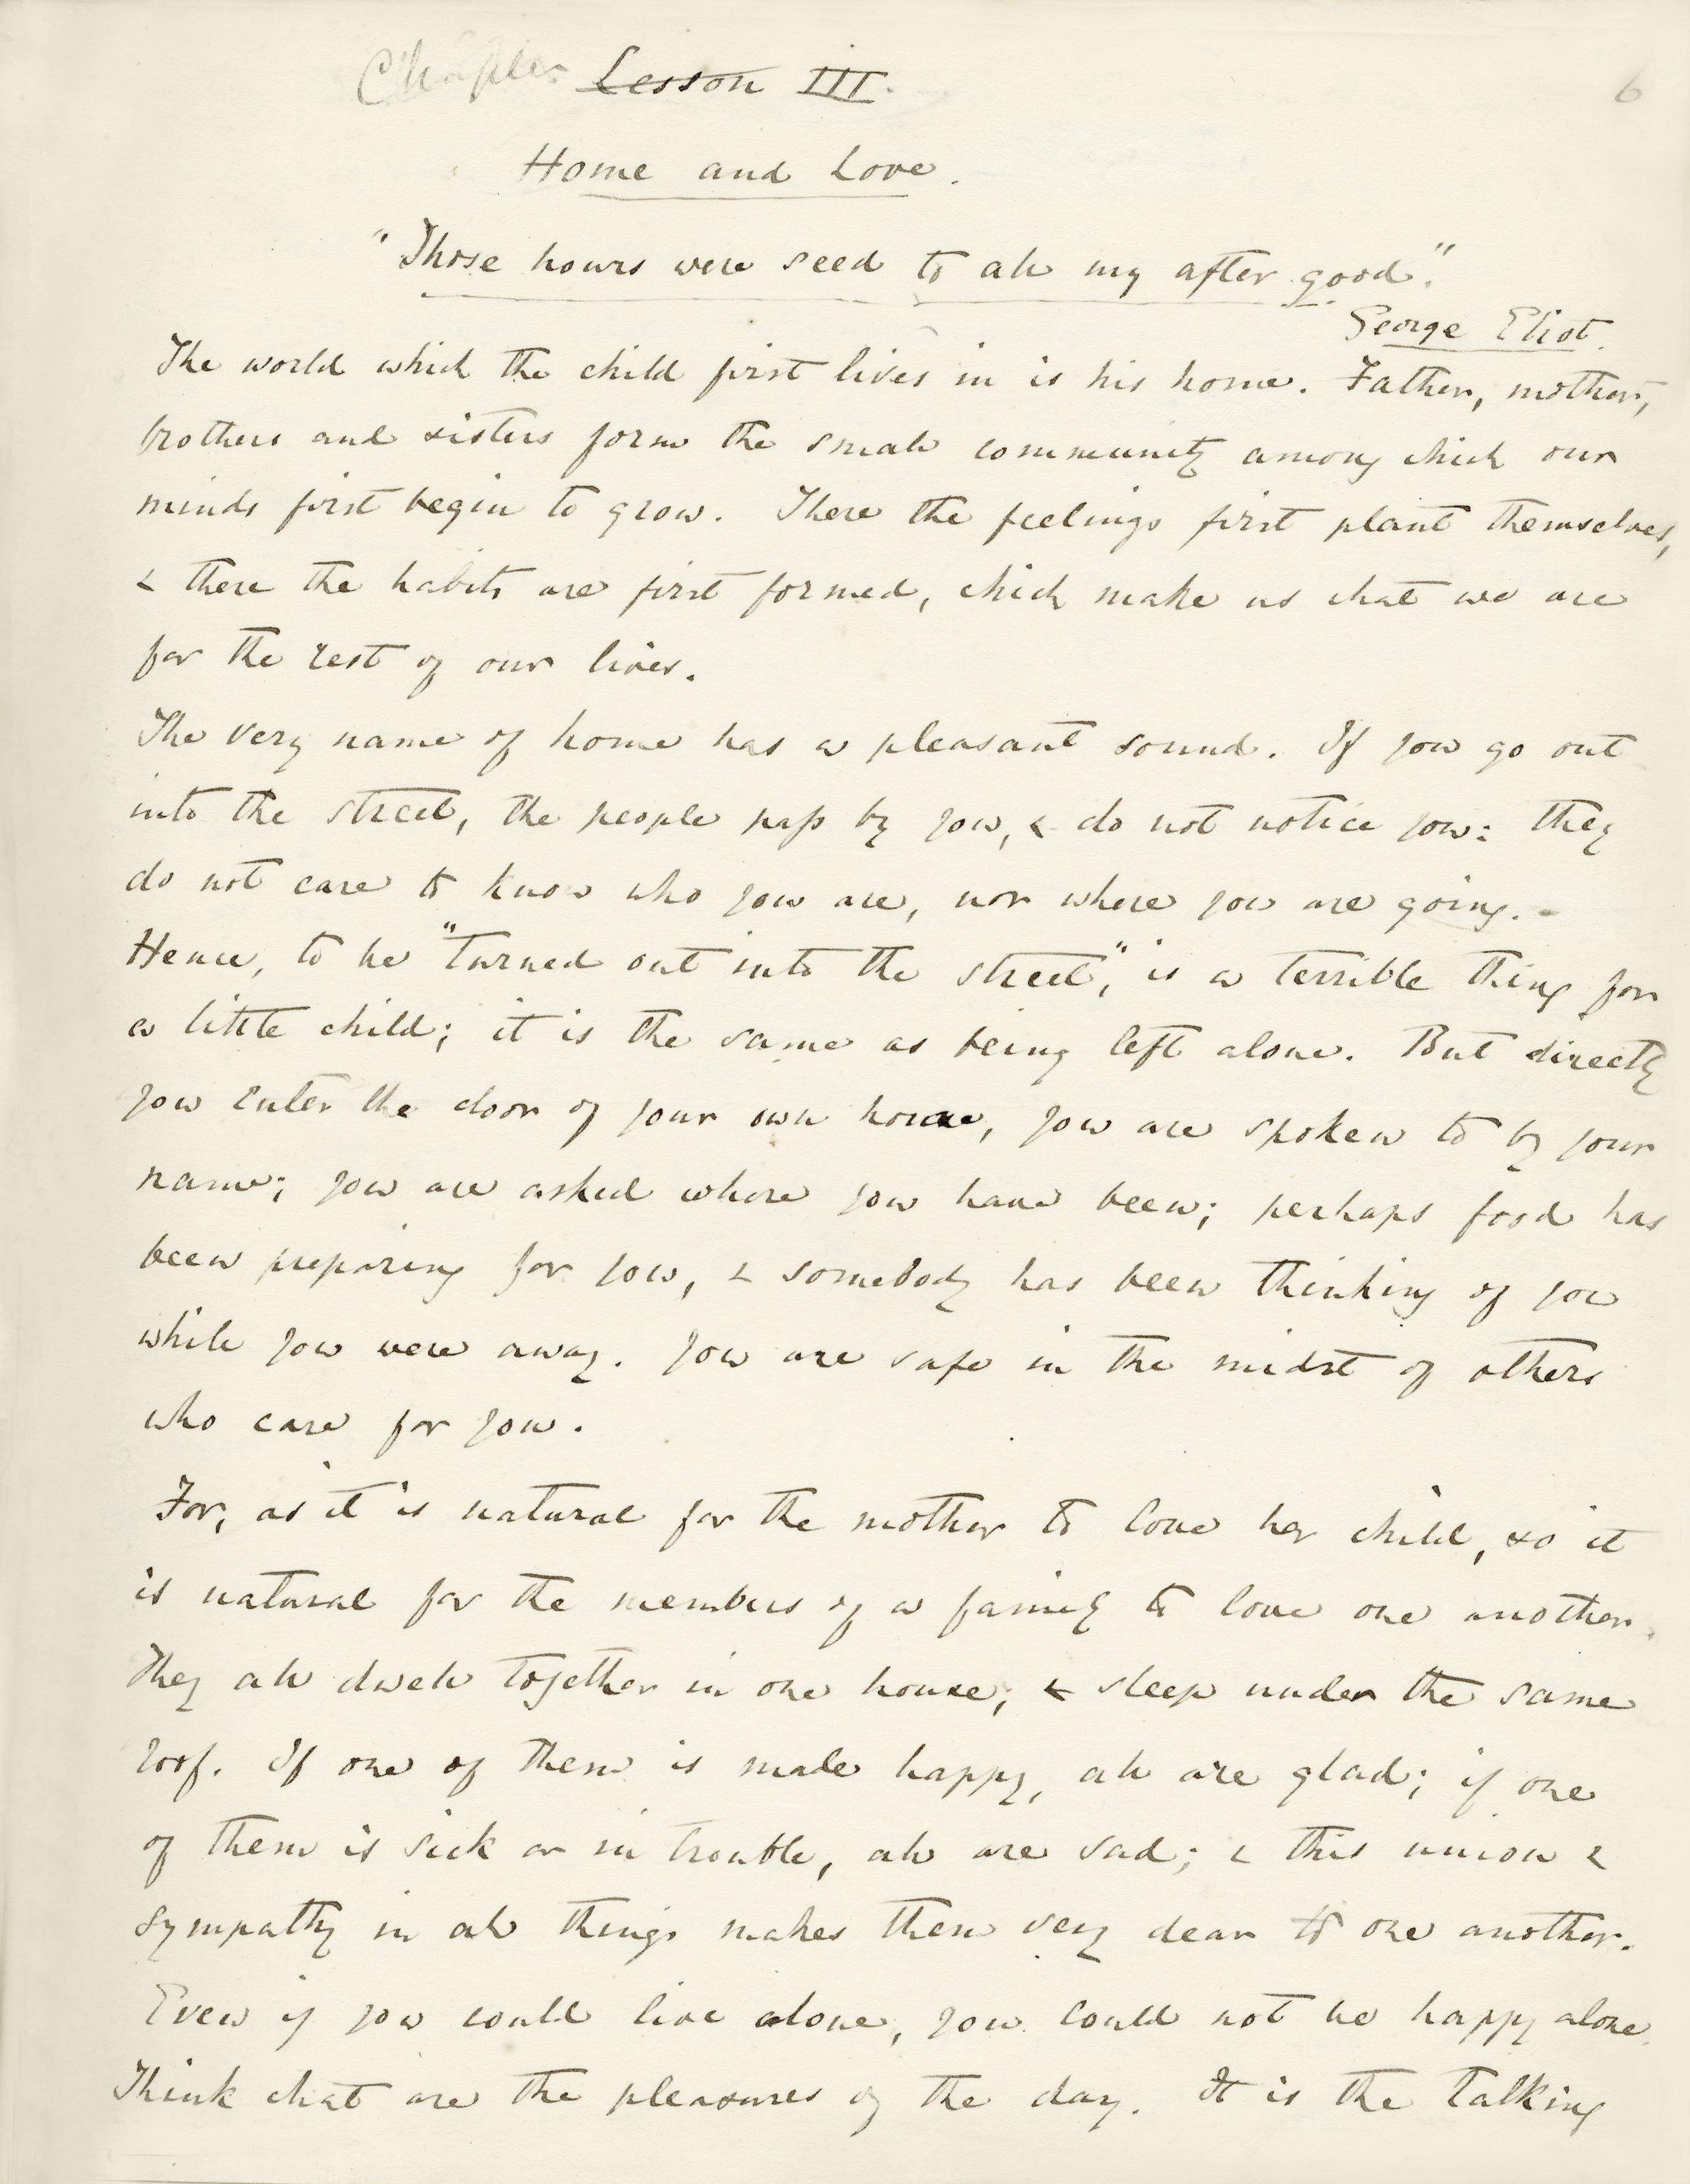 Chapter Lesson III.
6
Home and Love.
"Those hours were seed to all my after good."
George Eliot.
The world which the child first lives in is his home. Father, mother,
brothers and sisters form the small community among which our
minds first begin to grow. There the feelings first plant themselves,
& there the habits are first formed, which make us what we are
for the rest of our lives.
The very name of home has a pleasant sound. If you go out
into the street, the people pass by you, & do not notice you: they
do not care to know who you are, nor where you are going. -
Hence, to be "turned out into the street", is a terrible thing for
a little child; it is the same as being left alone. But directly
you enter the door of your own house, you are spoken to by your
name; you are asked where you have been; perhaps food has
been preparing for you, & somebody has been thinking of you
while you were away. You are safe in the midst of others
who care for you.
For, as it is natural for the mother to love her child, so it
is natural for the members of a family to love one another.
They all dwell together in one house, & sleep under the same
roof. If one of them is made happy, all are glad; if one
of them is sick or in trouble, all are sad; & this union &
sympathy in all things makes them very dear to one another.
Even if you could live alone, you could not be happy alone.
Think what are the pleasures of the day. It is the talking